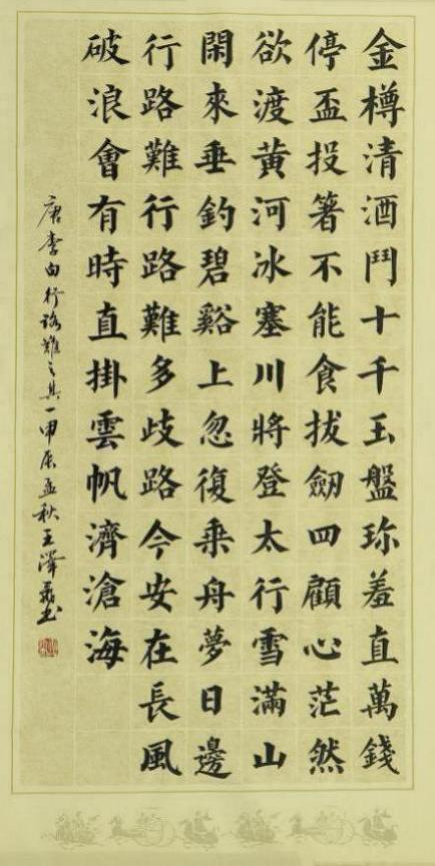 金樽清酒鬥十千玉盤珎羞直萬錢
停盃投箸不能食拔劒四顧心茫然
欲渡黃河冰塞川將登太行雪滿山
閑來垂釣碧谿上忽復乘舟夢日邊
行路難行路難多歧路今安在長風
破浪會有時直掛雲帆濟滄海
唐李白行路難之其一甲辰孟秋王澤书